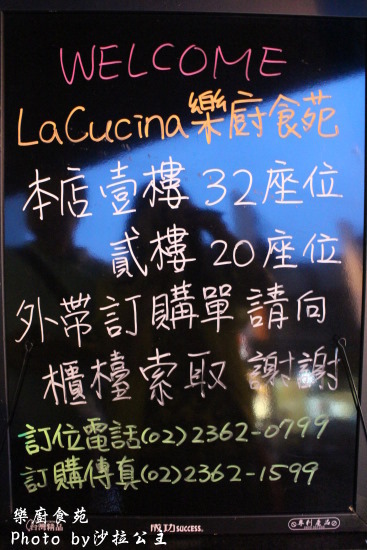 WELCOME
LaCucina樂廚食苑
本店壹樓 32座位
貳樓 20座位
外帶訂購單請向
櫃檯索取 謝謝
訂位電話(02)2362-0799
訂購傳真(02)2362-1599
台灣精品 成功 success. 專利產品
樂廚食苑
Photo by沙拉公主